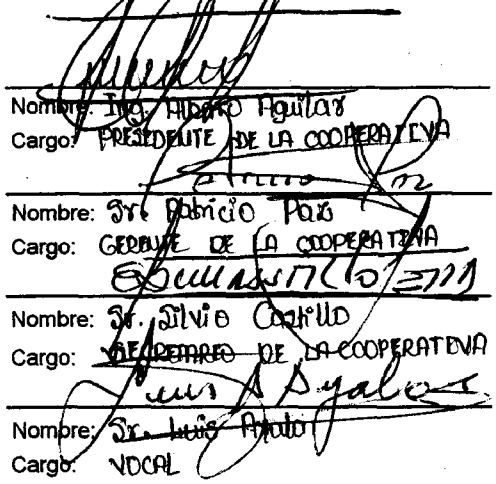 Nombre: Ing. Alberto Aguilar
Cargo: PRESIDENTE DE LA COOPERATIVA
Nombre: Sr. Patricio Paz
Cargo: GERENTE DE LA COOPERATIVA
Nombre: Sr. Silvio Castillo
Cargo: SECRETARIO DE LA COOPERATIVA
Luis A Ayala
Nombre: Sr. Luis Ayala
Cargo: VOCAL